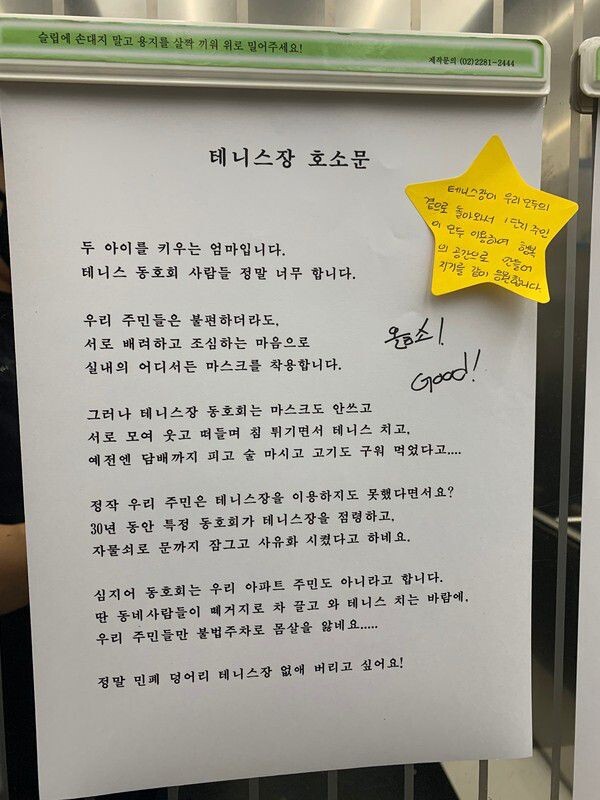 슬립에 손대지 말고 용지를 살짝 끼워 위로 밀어주세요!
제작문의 (02)2281-2444
테니스장 호소문
테니스장이 우리 모두의
곁으로 돌아와서 1단지 주민
이 모두 이용하여 행복
의 공간으로 만들어
지기를 같이 응원합니다.
두 아이를 키우는 엄마입니다.
테니스 동호회 사람들 정말 너무 합니다.
우리 주민들은 불편하더라도,
서로 배려하고 조심하는 마음으로
실내의 어디서든 마스크를 착용합니다.
옳소!
Good!
그러나 테니스장 동호회는 마스크도 안쓰고
서로 모여 웃고 떠들며 침 튀기면서 테니스 치고,
예전엔 담배까지 피고 술 마시고 고기도 구워 먹었다고....
정작 우리 주민은 테니스장을 이용하지도 못했다면서요?
30년 동안 특정 동호회가 테니스장을 점령하고,
자물쇠로 문까지 잠그고 사유화 시켰다고 하네요.
심지어 동호회는 우리 아파트 주민도 아니라고 합니다.
딴 동네사람들이 빼거지로 차 끌고 와 테니스 치는 바람에,
우리 주민들만 불법주차로 몸살을 앓네요.....
정말 민폐 덩어리 테니스장 없애 버리고 싶어요!